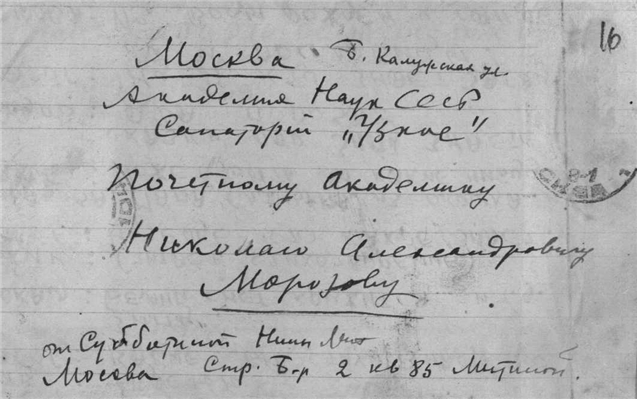 16
Москва Б. Калужская ул
Академия Наук СССР
Санаторій „Узкое"
Почетному Академику
Николаю Александровичу
Морозову
от Субботиной Нины Мих
Москва Стр. Б-р 2 кв 85 Митиной.